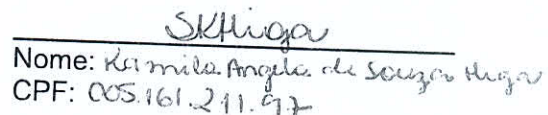 SKHiga
Nome: Kamila Angela de Souza Higa
CPF: 005.161.211.97